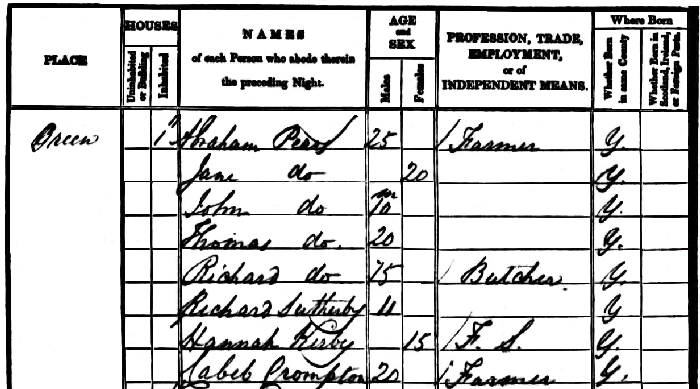 PLACE HOUSES Uninhabited or Building Inhabited NAMES of each Person who abode therein the preceding Night. AGE and SEX Males Females PROFESSION, TRADE, EMPLOYMENT, or of INDEPENDENT MEANS. Where Born Whether Born in same County Whether Born in Scotland, Ireland, or Foreign Parts.
Green 1 Abraham 25 Farmer Y.
Jane do 20 Y.
John do Y.
Thomas do. 20 Y.
Richard do 15 Butcher. Y.
Richard Sutherby 11 Y
Hannah Kirby 15 F. S. Y.
Caleb Crompton 20 Farmer Y.